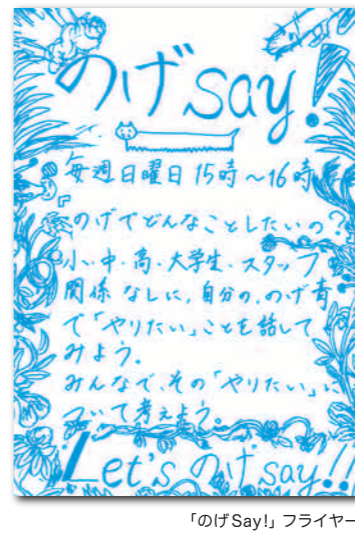 のげsay!
毎週日曜日 15時〜16時
「のげでどんなことしたいの?
小・中・高・大学生・スタッフ
関係なしに、自分の、のげ青
で「やりたい」ことを話して
みよう。
みんなで、その「やりたい」に
ついて考えよう。
Let's のげsay!!
「のげSay!」フライヤー